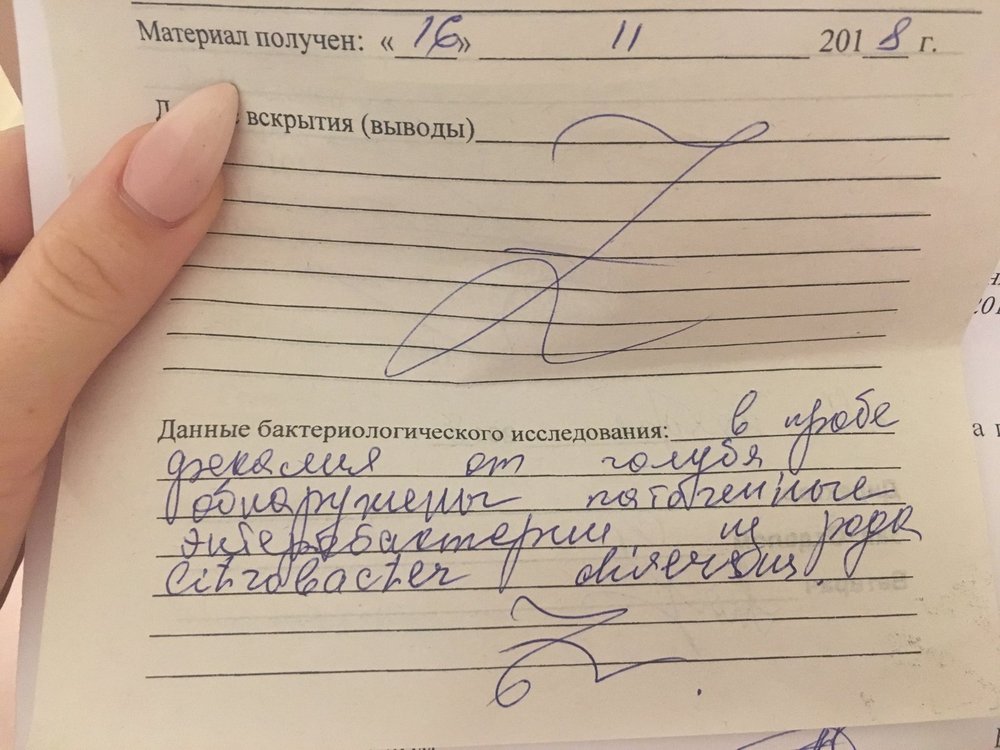 Материал получен: «16» 11 2018 г.
вскрытия (выводы)
Данные бактериологического исследования: в пробе
фекалия от голубя
обнаружены патогенные
энтеробактерии из рода
Citrobacter